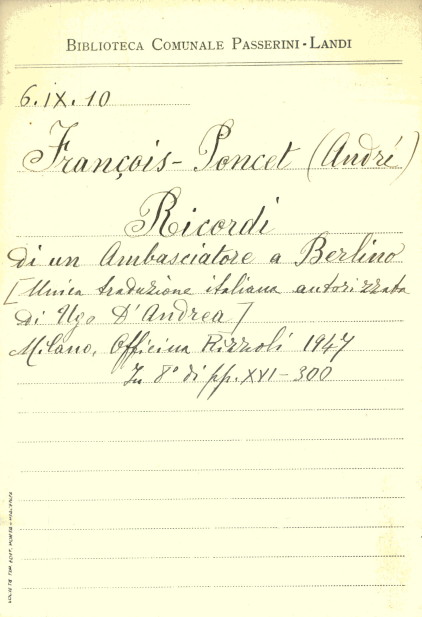 BIBLIOTECA COMUNALE PASSERINI-LANDI
6.IX.10
François-Poncet (André)
Ricordi
di un Ambasciatore a Berlino
[Unica traduzione italiana autorizzata
di Ugo D'Andrea]
Milano, Officina Rizzoli 1947
In 8° di pp. XVI-300